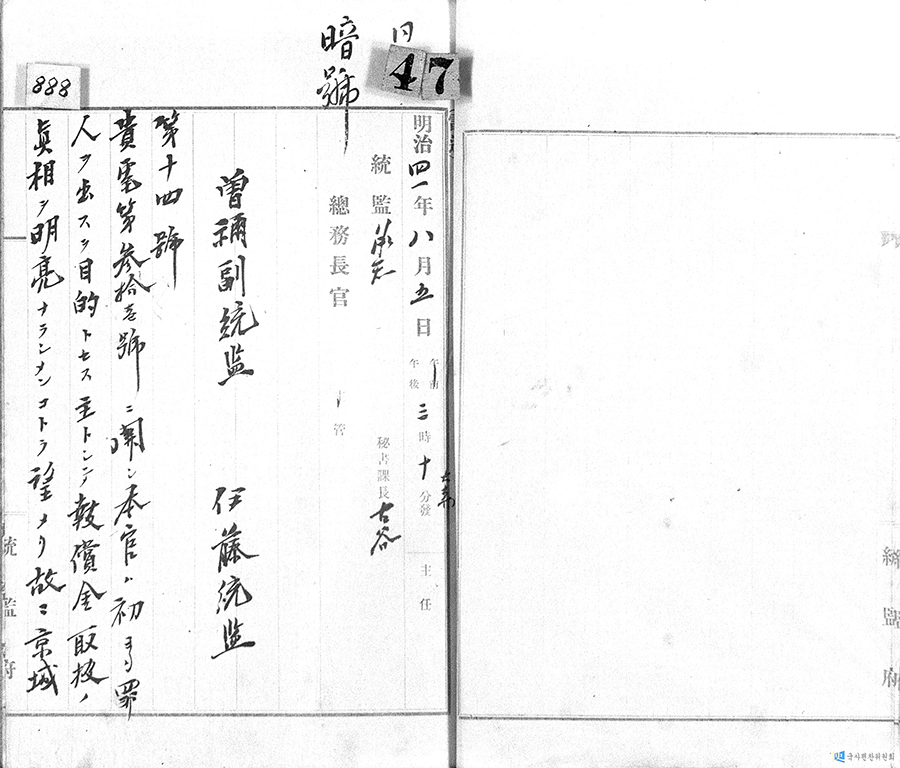 暗號
47
888
明治四一年八月五日午前午後三時十分發
主任
統監
秘書課長 古谷
總務長官
曾禰副統監 伊藤統監
第十四號
貴電第參拾壱號ニ関シ本官ハ初ヨリ罪
人ヲ出スヲ目的トセス主トシテ報償金取扱ノ
真相ヲ明亮ナラシメンコトヲ望メリ故ニ京城
統監府
統監府
국사편찬위원회